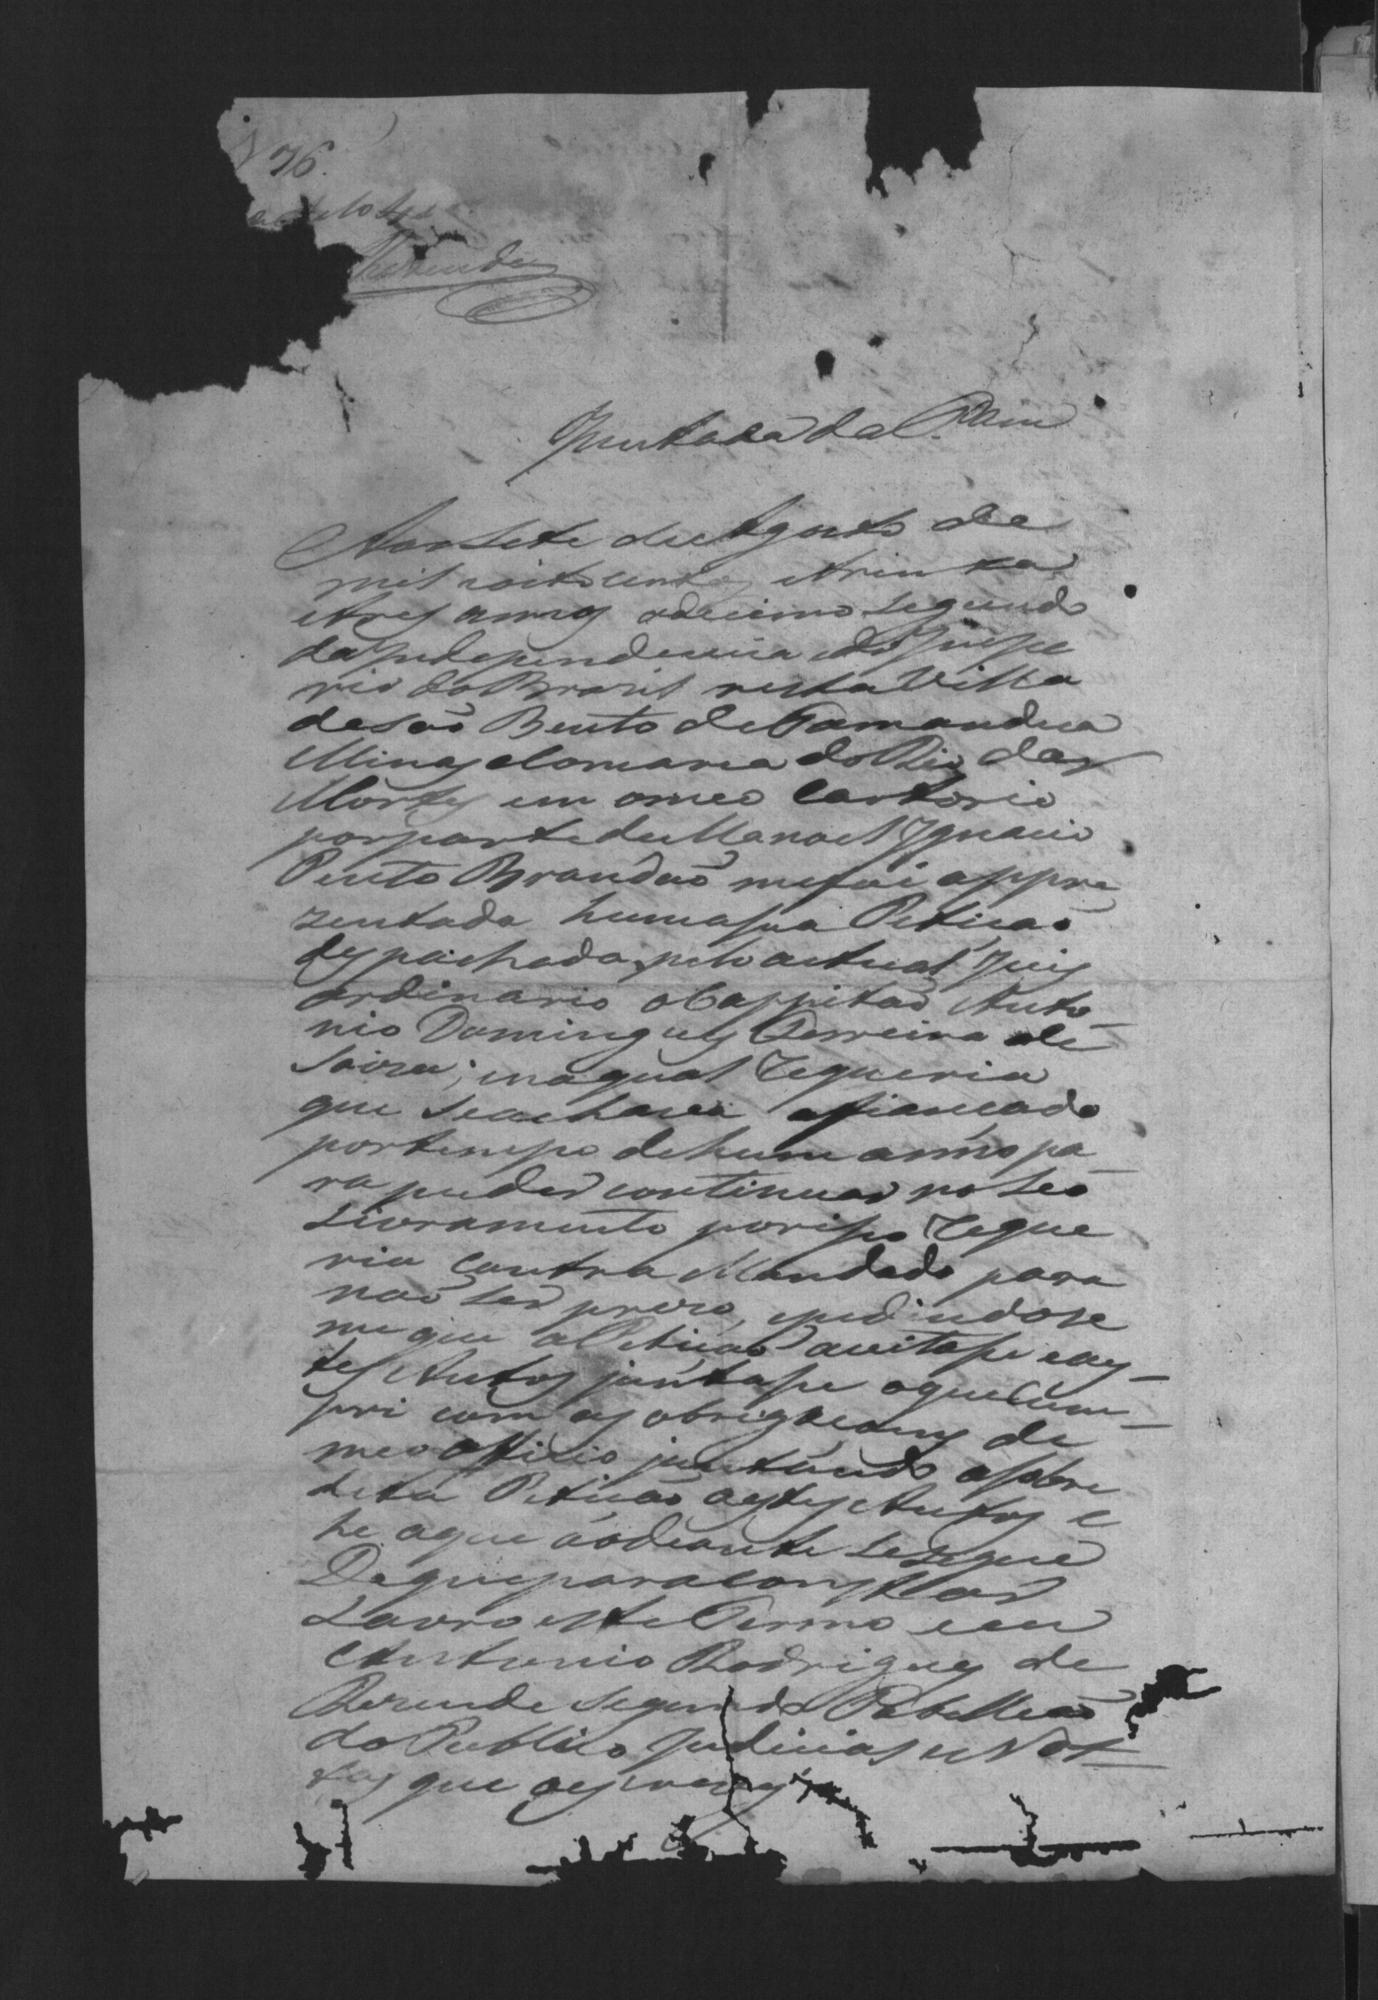 N 76.
Rezende
Juntada da P.am
Aos Sete de Agosto de
mil e oitocentos e trinta
e tres annos odecimo segundo
da Independencia e do Impe
rio do Brazil nesta Villa
de saõ Bento de Tamandua
Minas e Comarca do Rio das
Mortes em o meo Cartorio
por parte de Manoel Ignacio
Pinto Brandaõ me foi appre
zentada huma sua Petiçaõ
despachada pelo actual Juis
ordinario o Cappitaõ Anto
nio Domingues Ferreira de
Soiza; e na qual Requeria
que se achava afiançado
por tempo de hum anno pa
ra puder continuar no seo
Livramento por isso Reque
ria Contra Mandado para
naõ ser prezo, e pedindose
me que a Petiçaõ aceitasse e a es
tes Autos juntasse o que Cum
pri com as obrigaçoens de
meo Officio juntando a sobre
dita Petiçaõ a estes Autos e
he a que aodeante se segue
De que para constar
Lavro este Termo e eu
Antonio Rodrigues de
Rezende segundo Tabelliaõ
do Publico Judicial e Not
tas que escrevy